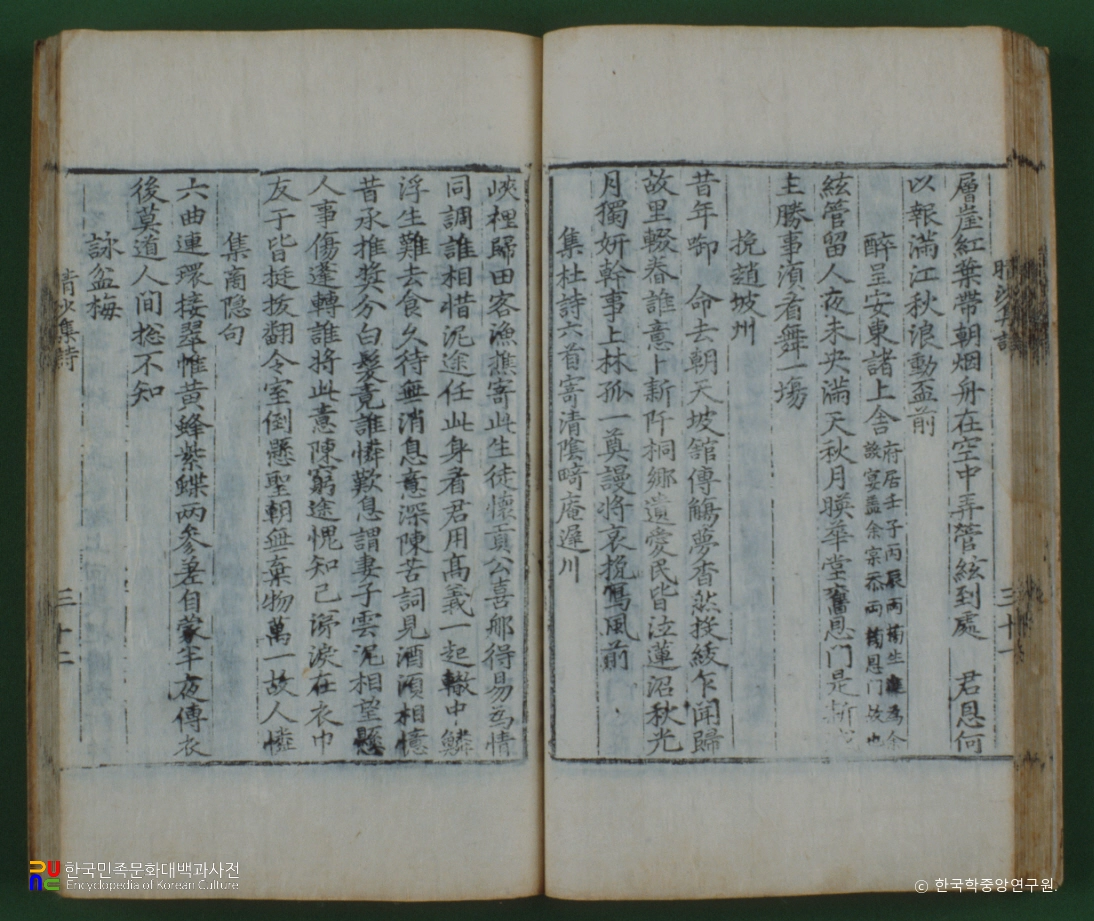 晴沙集詩
三十一
層崖紅葉帶朝烟舟在空中弄管絃到處 君恩何
以報滿江秋浪動盃前
醉呈安東諸上舍
府居壬子丙辰兩榜生
設宴盖余宗忝兩榜恩門故也
絃管留人夜未央滿天秋月暎華堂舊恩門是
主勝事須看舞一塲
挽趙坡州
昔年啣 命去朝天坡舘傳觴夢杳然投綾乍聞歸
故里輟舂誰意卜新阡桐鄉遺愛民皆泣蓮沼秋光
月獨姸幹事上林孤一奠謾將哀挽寫風前
集杜詩六首寄清陰畸庵遲川
峽裡歸田客漁樵寄此生徒懷貢公喜那得易爲情
同調誰相惜泥途任此身看君用高義一起轍中鱗
浮生難去食久待無消息意深陳苦詞見酒須相憶
昔承推奬分白髮竟誰憐歎息謂妻子雲泥相望懸
人事傷蓬轉誰將此意陳窮途愧知己涕淚在衣巾
友于皆挺拔翻令室倒懸聖朝無棄物萬一故人憐
集离隐句
六曲連環接翠帷黄蜂紫蝶兩參差自蒙半夜傳衣
後莫道人間捴不知
詠盆梅
晴沙集詩
三十二
한국민족문화대백과사전
Encyclopedia of Korean Culture
© 한국학중앙연구원.